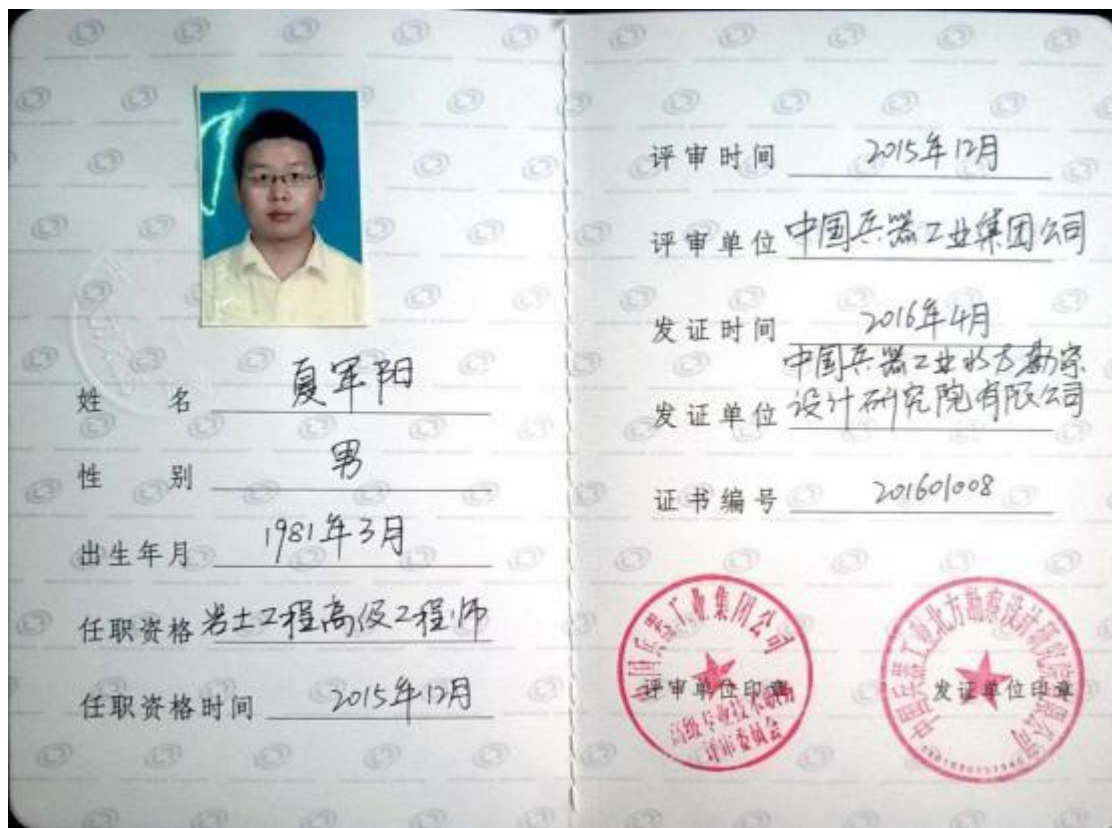 姓名 夏军阳
性别 男
出生年月 1981年3月
任职资格 岩土工程高级工程师
任职资格时间 2015年12月
评审时间 2015年12月
评审单位 中国兵器工业集团公司
发证时间 2016年4月
中国兵器工业北方勘察
发证单位 设计研究院有限公司
证书编号 201601008
中国兵器工业集团公司
评审单位印章
高级专业技术职务
评审委员会
中国兵器工业北方勘察设计研究院有限公司
发证单位印章